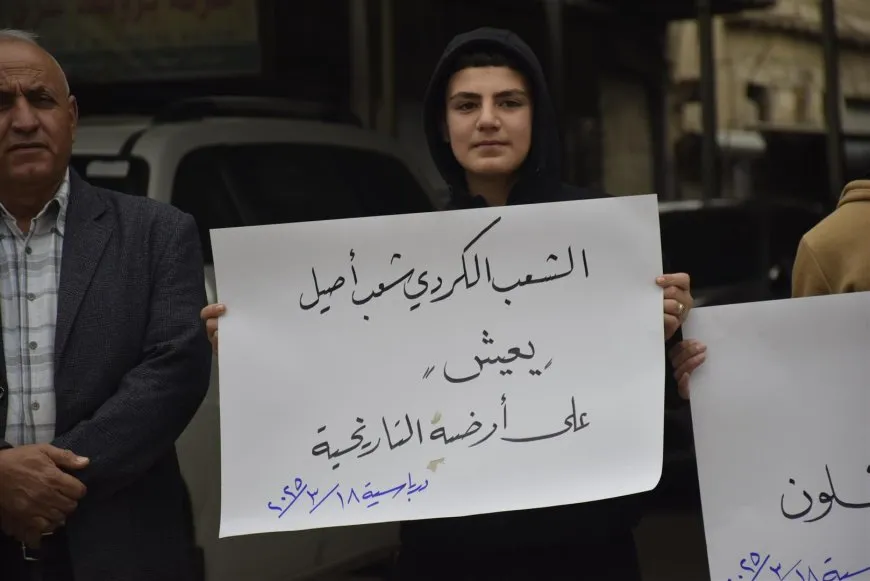 الشعب الكردي شعب أصيل
"يعيش"
على أرضه التاريخية
درباسية ٢٠٢٥/٣/١٨
لون
سية ٢٠٢٥/٣/١٨